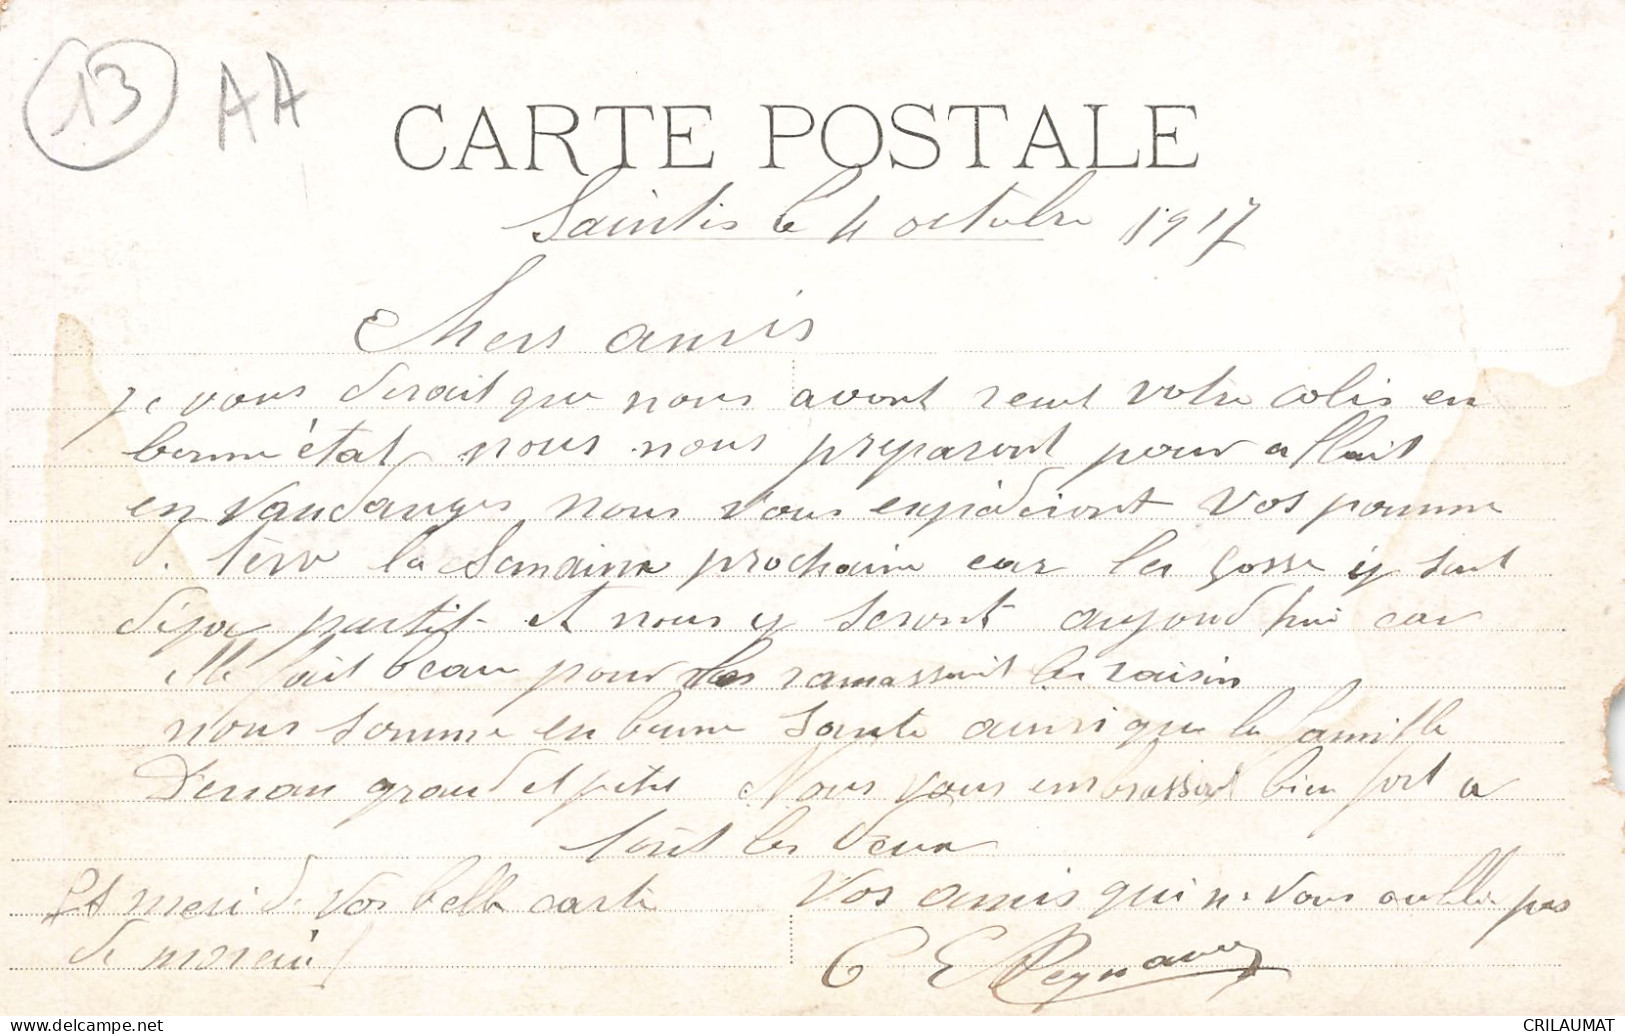 13 AA
CARTE POSTALE
le 4 octobre 1917
Chers amis
je vous dirait que nous avont recut votre colis en
bonne état nous nous preparont pour allait
en vandanges nous vous expidiront vos pomme
d. tère la Semaine prochaine car les gosse y sont
déja partit et nous y seront aujourd hui car
elle fait beau pour les ramassait les raisin
nous somme en bonne santé ainsi que la famille
grand et petit Nous vous embrassont bien fort a
tout les deux
Et merci de vos belle carte
Vos amis qui ne vous oublie pas
de
C E Reynaud
CRILAUMAT